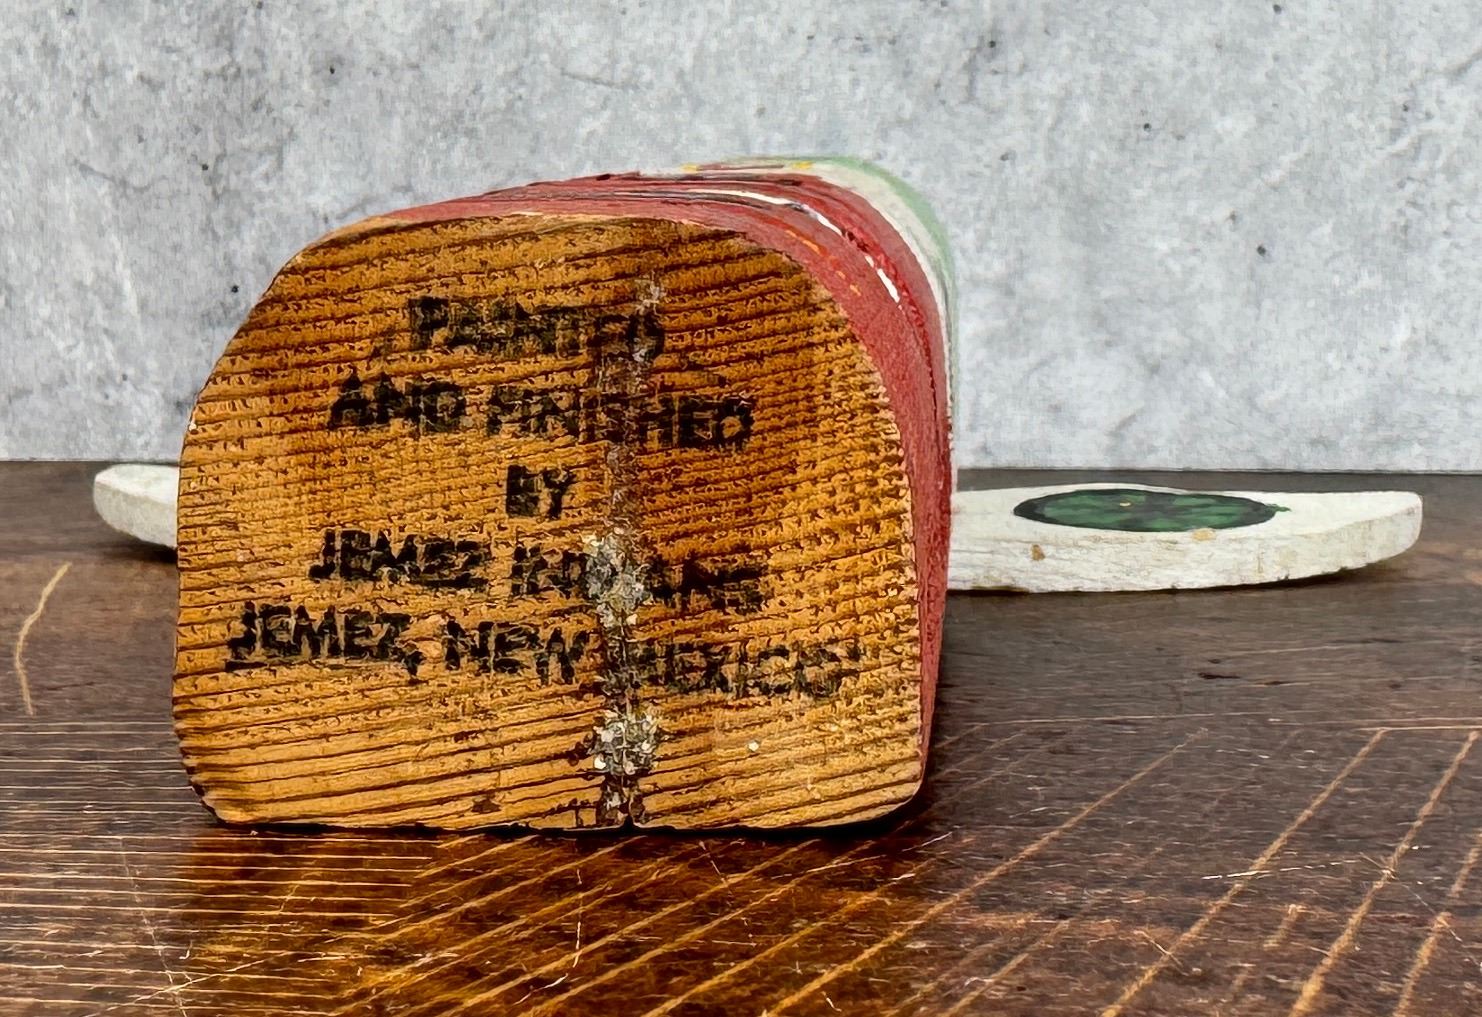 PAINTED
AND FINISHED
BY
JEMEZ INDIANS
JEMEZ, NEW MEXICO